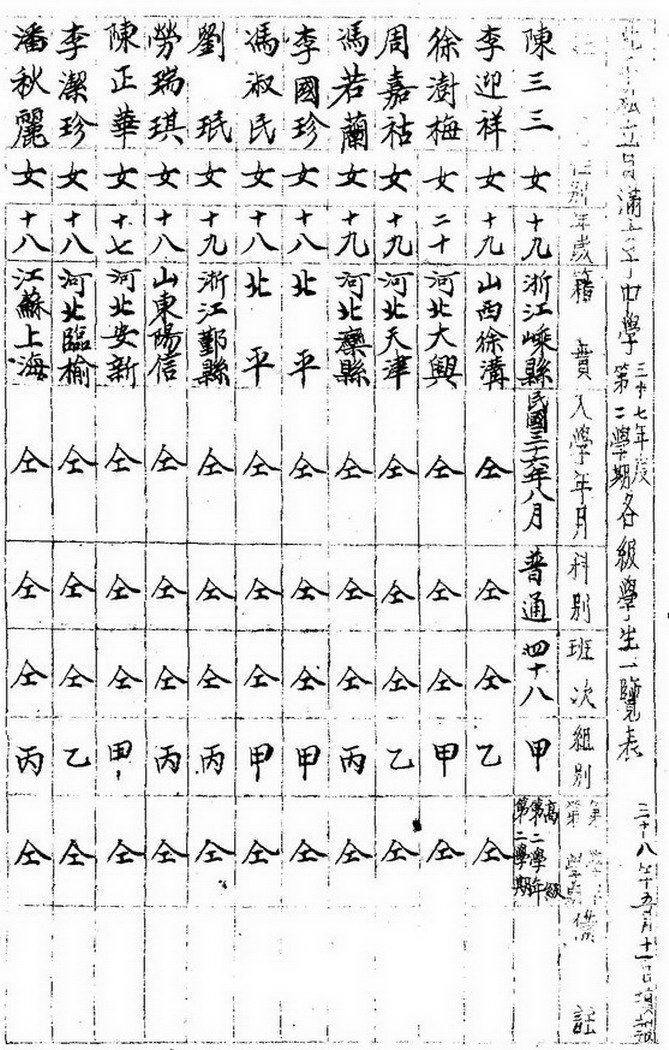 中學三十七年度第二學期各級學生一覽表
三十八年五月十一日填報
性別 年歲 籍貫 入學年月 科別 班次 組別 備註
陳三三 女 十九 浙江嵊縣 民國三十六年八月 普通 四十八 甲 高級第二學年第二學期
李迎祥 女 十九 山西徐溝 仝 仝 仝 乙 仝
徐澍梅 女 二十 河北大興 仝 仝 仝 甲 仝
周嘉祜 女 十九 河北天津 仝 仝 仝 乙 仝
馮若蘭 女 十九 河北灤縣 仝 仝 仝 丙 仝
李國珍 女 十八 北平 仝 仝 仝 甲 仝
馮淑民 女 十八 北平 仝 仝 仝 甲 仝
劉珉 女 十九 浙江鄞縣 仝 仝 仝 丙 仝
勞瑞琪 女 十八 山東陽信 仝 仝 仝 丙 仝
陳正華 女 十七 河北安新 仝 仝 仝 甲 仝
李潔珍 女 十八 河北臨榆 仝 仝 仝 乙 仝
潘秋麗 女 十八 江蘇上海 仝 仝 仝 丙 仝